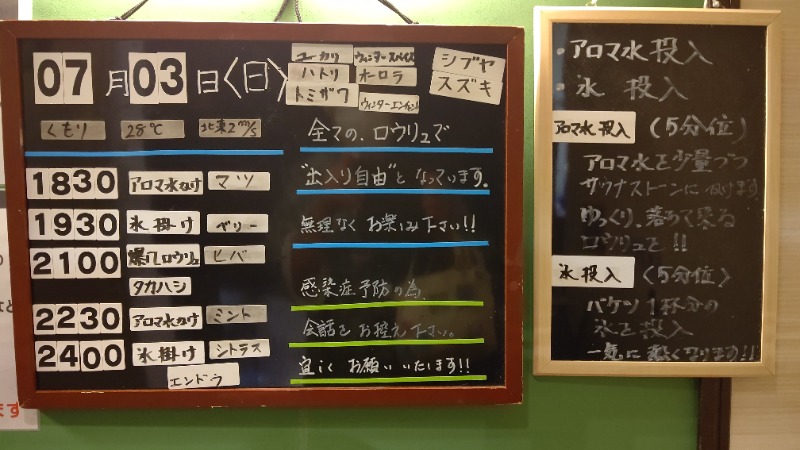 07月03日〈日〉
ユーカリ
ハトリ オーロラ
トミザワ
シブヤ
スズキ
くもり 28℃ 北東2m/s
1830 アロマ水かけ マツ
1930 氷掛け ベリー
2100 爆風ロウリュ ヒバ
タカハシ
2230 アロマ水かけ ミント
2400 氷掛け シトラス
エンドウ
全ての、ロウリュで
"出入り自由"となっています。
無理なくお楽しみ下さい!!
感染症予防の為、
会話をお控え下さい。
宜しくお願いいたします!!
・アロマ水投入
・氷 投入
アロマ水投入 (5分位)
アロマ水を少量づつ
サウナストーンにかけます
ゆっくり、落ちて来る
ロウリュで!!
氷投入 〈5分位〉
バケツ1杯分の
氷を投入
一気に熱くなります!!
ます